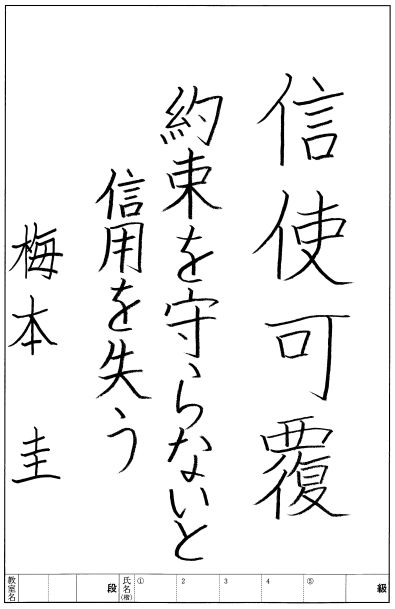 信使可覆
約束を守らないと
信用を失う
梅本 圭
教室名 段 氏名(欄) ① 2 3 4 ⑤ 級